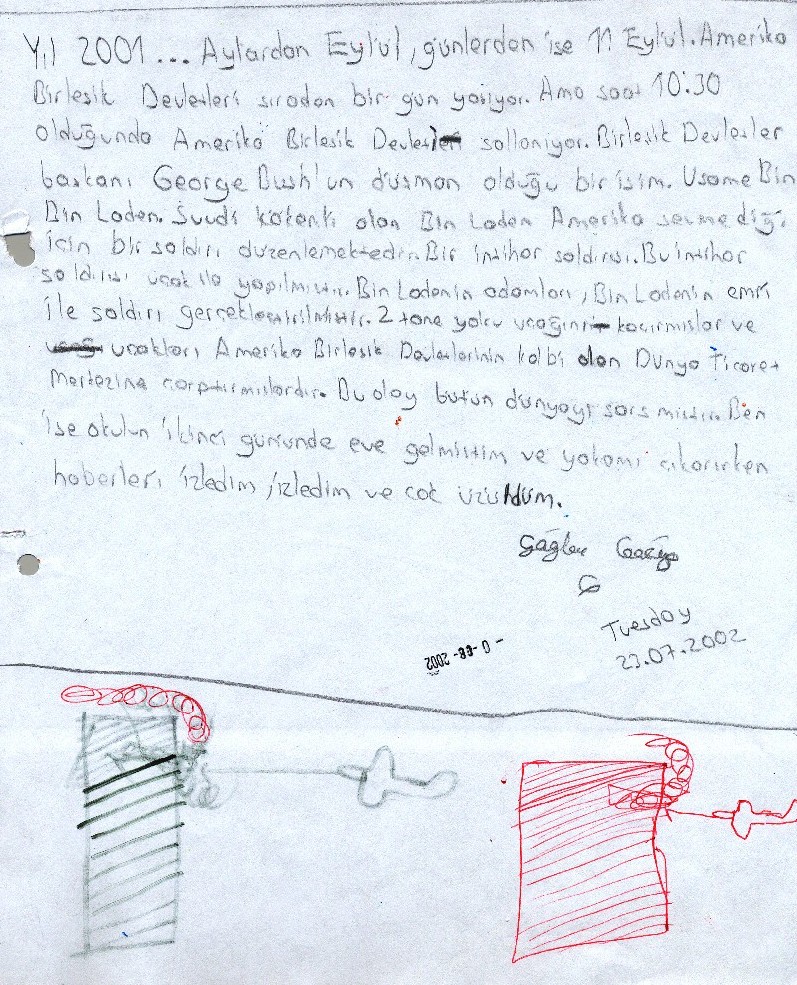 Yıl 2001... Aylardan Eylül, günlerden ise 11 Eylül. Amerika
Birleşik Devletleri sıradan bir gün yaşıyor. Ama saat 10:30
olduğunda Amerika Birleşik Devletleri sallanıyor. Birleşik Devletler
başkanı George Bush'un düşman olduğu bir isim. Usame Bin
Bin Laden. Suudi kökenli olan Bin Laden Amerika sevmediği
için bir saldırı düzenlemektedir. Bir intihar saldırısı. Bu intihar
saldırısı uçak ile yapılmıştır. Bin Ladenin adamları, Bin Ladenin emri
ile saldırı gerçekleştirilmiştir. 2 tane yolcu uçağını kaçırmışlar ve
uçakları Amerika Birleşik Devletlerinin kalbi olan Dünya Ticaret
Merkezine çarptırmışlardır. Bu olay bütün dünyayı sarsmıştır. Ben
ise okulun ikinci gününde eve gelmiştim ve yakamı çıkarırken
haberleri izledim, izledim ve çok üzüldüm.
Tuesday
23.07.2002